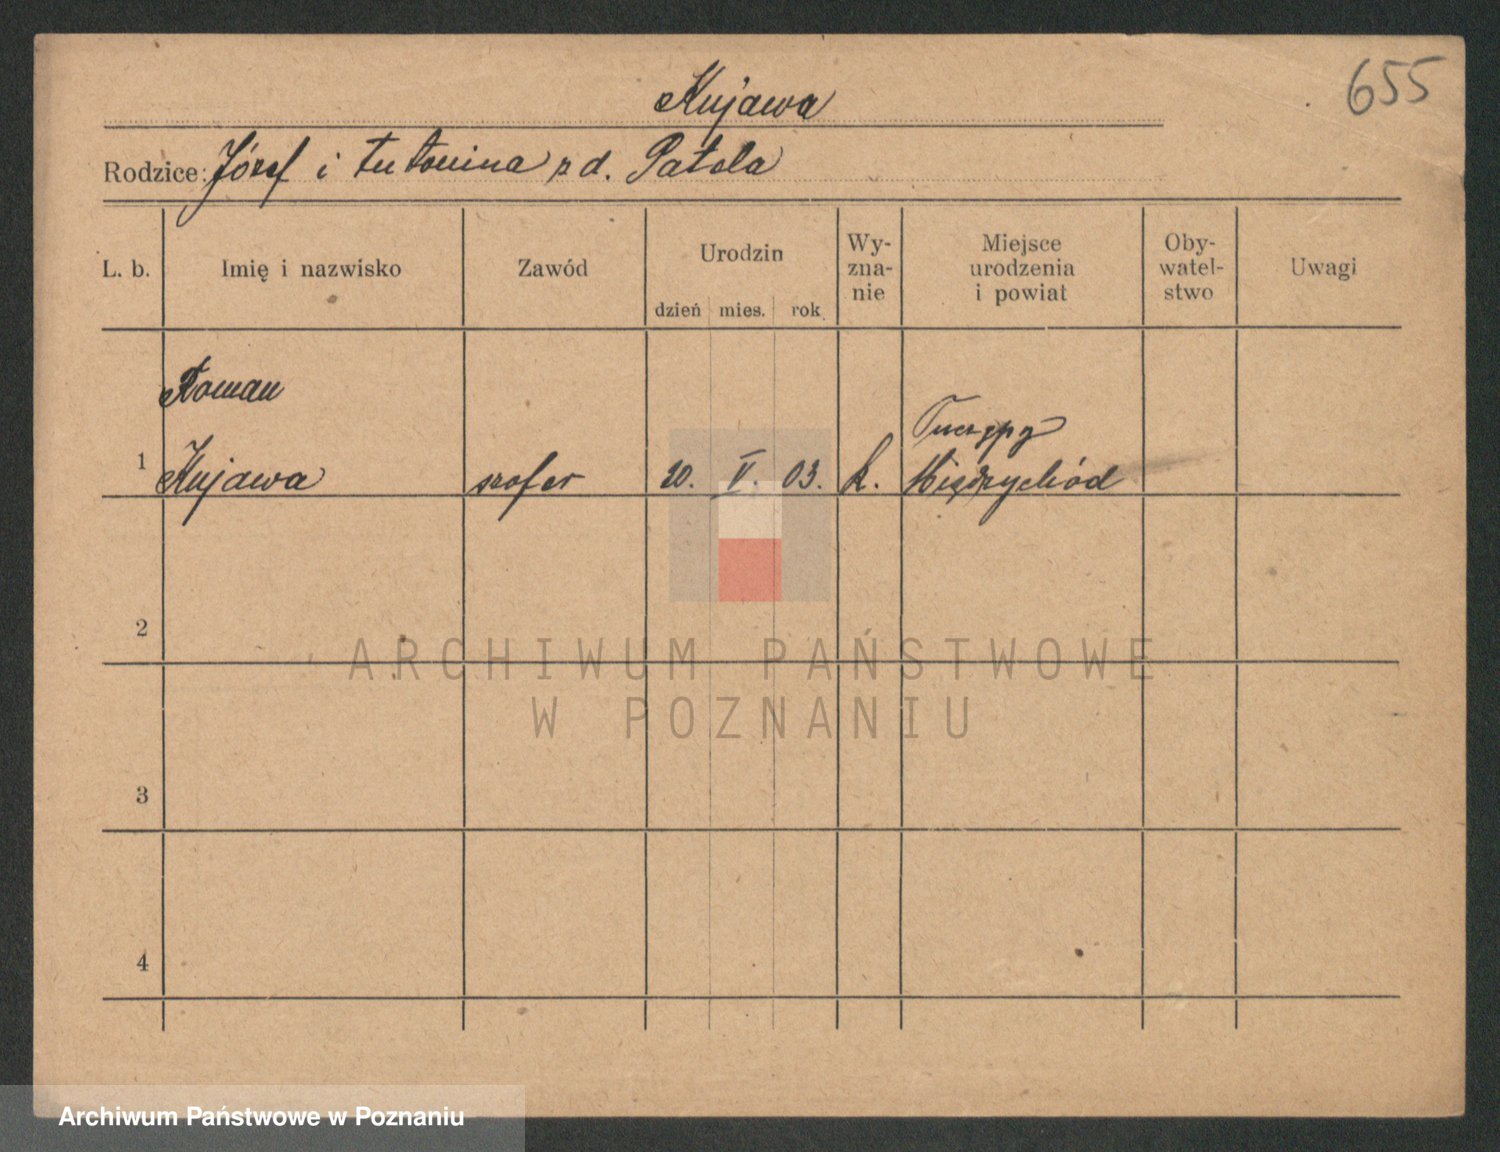 655
Kujawa
Rodzice: Józef i Antonina z d. Patela
L. b.
Imię i nazwisko
Zawód
Urodzin
dzień mies. rok
Wy-
zna-
nie
Miejsce
urodzenia
i powiat
Oby-
watel-
stwo
Uwagi
1
Roman
Kujawa
szofer
20. V. 03.
k.
Międzychód
2
3
4
ARCHIWUM PAŃSTWOWE
W POZNANIU
Archiwum Państwowe w Poznaniu